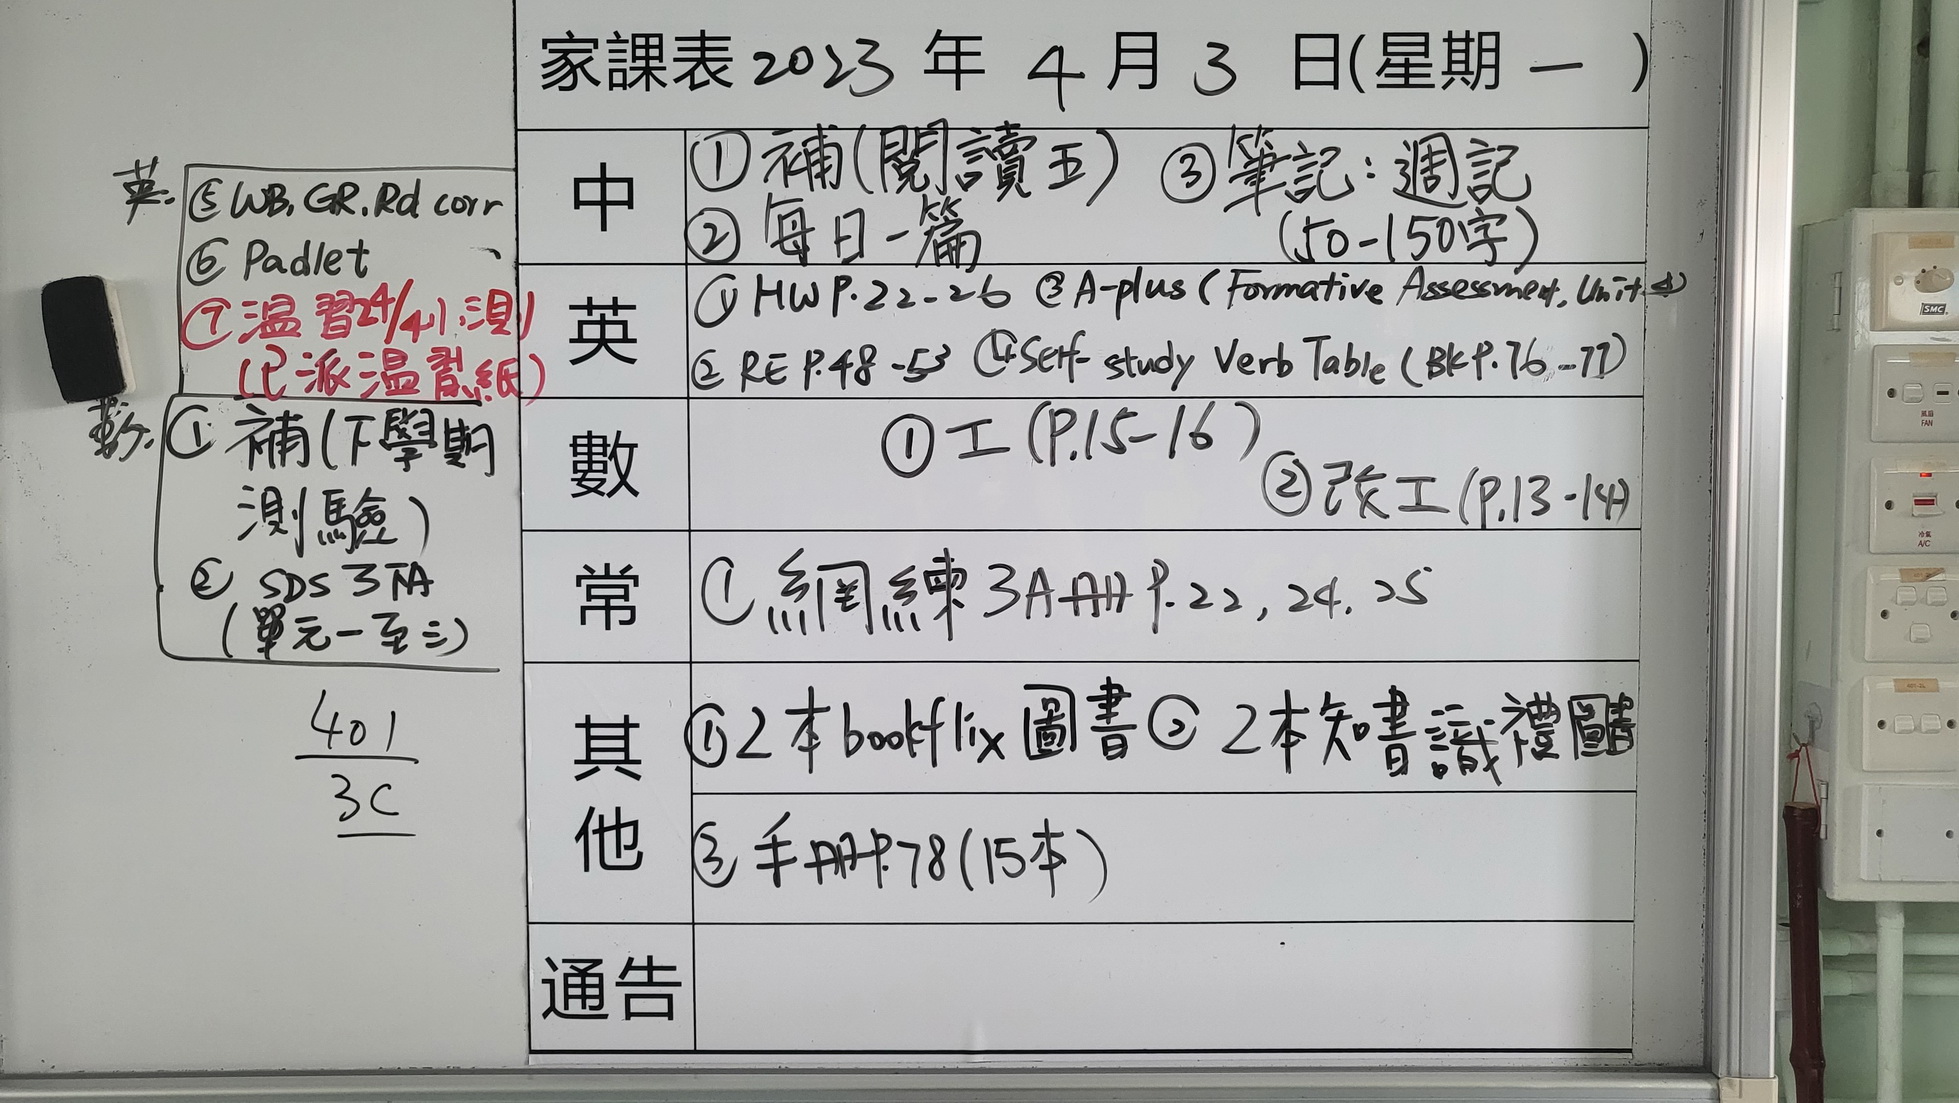 家課表 2023 年 4 月 3 日(星期一)
中
① 補(閱讀五) ③ 筆記：週記
② 每日一篇 (50-150字)
英
① HW P.22-26 ③ A-plus (Formative Assessment, Unit 4)
② RE P.48-53 ④ Self-study Verb Table (BK P.76-77)
數
① 工(P.15-16)
② 改工(P.13-14)
常
① 網練 3A冊 P.22, 24, 25
其他
① 2本bookflix圖書 ② 2本知書識禮圖書
③ 手冊P.78(15本)
通告
英.
⑤ WB, GR, Rd corr
⑥ Padlet
⑦ 温習24/4小測
(已派温習紙)
數.
① 補(下學期
測驗)
② SDS 3下A
(單元一至三)
401
3C
SMC
風扇
FAN
冷氣
A/C